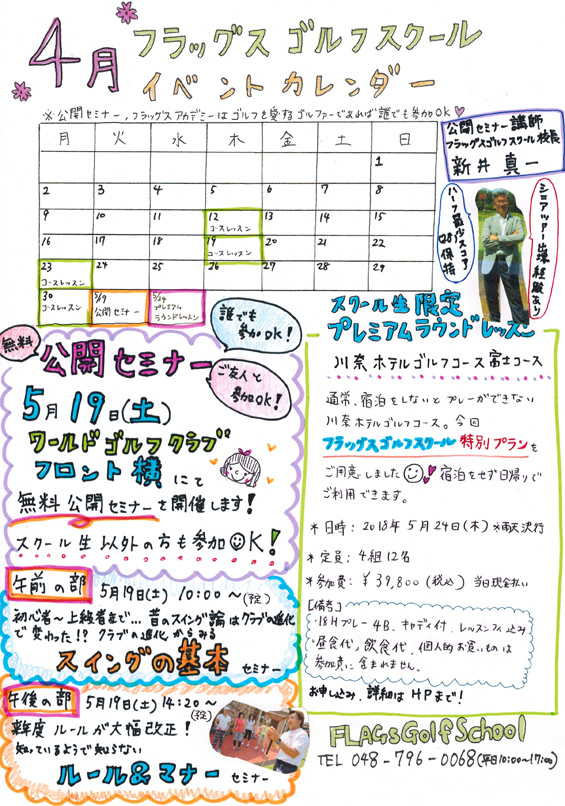 4月 フラッグス ゴルフスクール
イベント カレンダー
※公開セミナー,フラッグスアカデミーはゴルフを愛するゴルファーであれば誰でも参加OK♡
公開セミナー講師
フラッグスゴルフスクール校長
新井 真一
シニアツアー出場経験あり
保持
月 火 水 木 金 土 日
1
2 3 4 5 6 7 8
9 10 11 12 13 14 15
コースレッスン
16 17 18 19 20 21 22
コースレッスン
23 24 25 26 27 28 29
コースレッスン
30 5/19 5/24
コースレッスン 公開セミナー プレミアム
ラウンドレッスン
誰でも
参加OK!
無料
公開セミナー
ご友人と
参加OK!
5月19日(土)
ワールドゴルフクラブ
フロント横にて
無料公開セミナーを開催します!
スクール生以外の方も参加OK!
午前の部 5月19日(土) 10:00~(予定)
初心者~上級者まで... 昔のスイング論はクラブの進化
で変わった!? クラブの進化からみる
スイングの基本 セミナー
午後の部 5月19日(土) 14:20~
(予定)
ルールが大幅改正!
知っているようで知らない
ルール&マナー セミナー
スクール生限定
プレミアムラウンドレッスン
川奈ホテルゴルフコース富士コース
通常、宿泊をしないとプレーができない
川奈ホテルゴルフコース。今回
フラッグスゴルフスクール特別プランを
ご用意しました 宿泊をせず日帰りで
ご利用できます。
*日時: 2018年5月24日(木)※雨天決行
*定員: 4組12名
*参加費: ¥39,800(税込) 当日現金払い
[備考]
・18Hプレー 4B、キャディ付、レッスンフィ込み
・昼食代,飲食代,個人的お買いものは
参加費に含まれません。
お申し込み、詳細はHPまで!
FLAGS Golf School
TEL 048-796-0068(平日10:00~17:00)